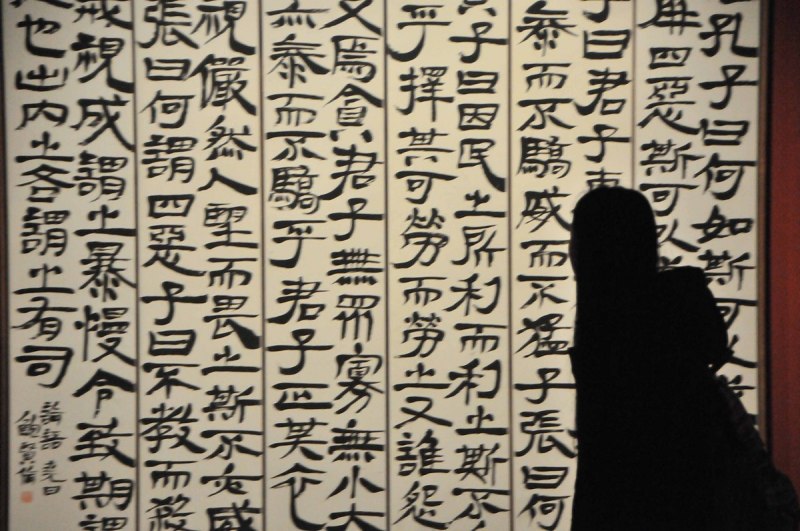 孔子曰何如斯可以
屏四惡斯可以
子曰君子惠
泰而不驕威而不猛子張曰何
子曰因民之所利而利之斯不
乎擇其可勞而勞之又誰怨
又焉貪君子無眾寡無小大
亦泰而不驕乎君子正其衣
視儼然人望而畏之斯不亦威
張曰何謂四惡子曰不教而殺
戒視成謂之暴慢令致期謂
也出內之吝謂之有司
論語堯曰
鮑賢倫